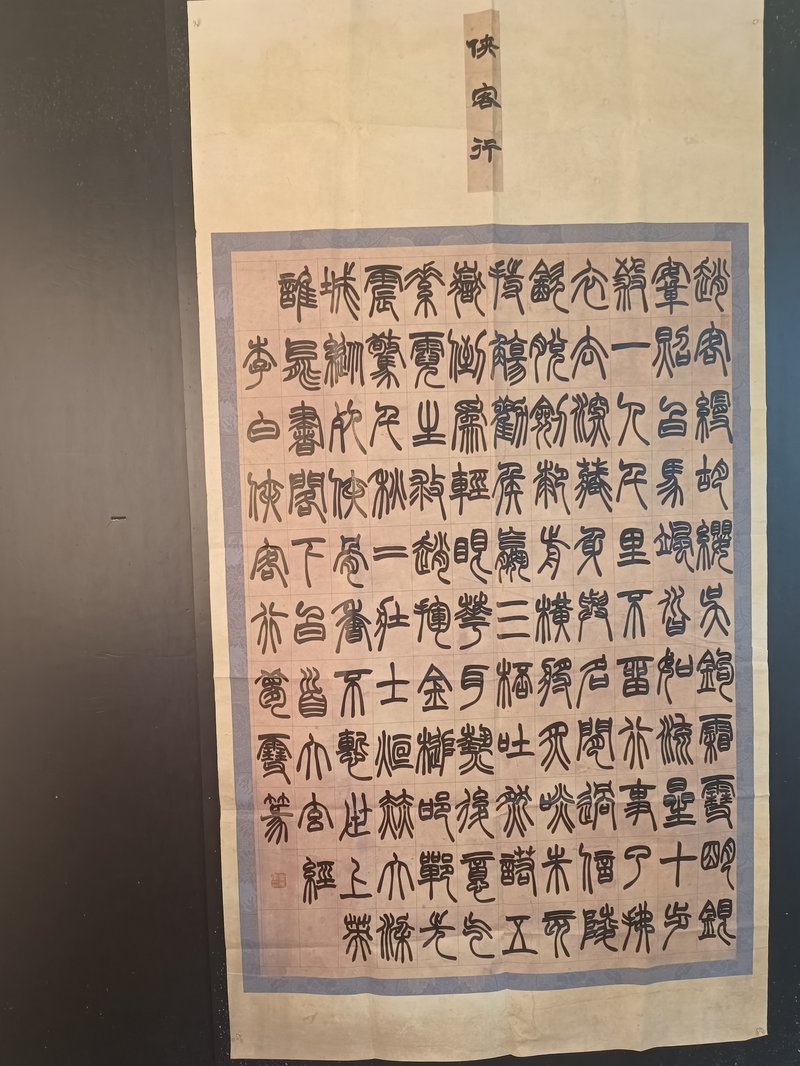 俠客行
趙客縵胡纓吳鉤霜雪明銀
鞍照白馬颯沓如流星十步
殺一人千里不留行事了拂
衣去深藏身與名閒過信陵
飲脫劍厀前橫將炙啖朱亥
持觴勸侯嬴三桮吐然諾五
嶽倒為輕眼華耳熱後意气
素霓生救趙揮金槌邯鄲先
震驚千秋二壯士烜赫大梁
城縱死俠骨香不慙世上英
誰能書閣下白首大玄經
李白俠客行夢雪篆